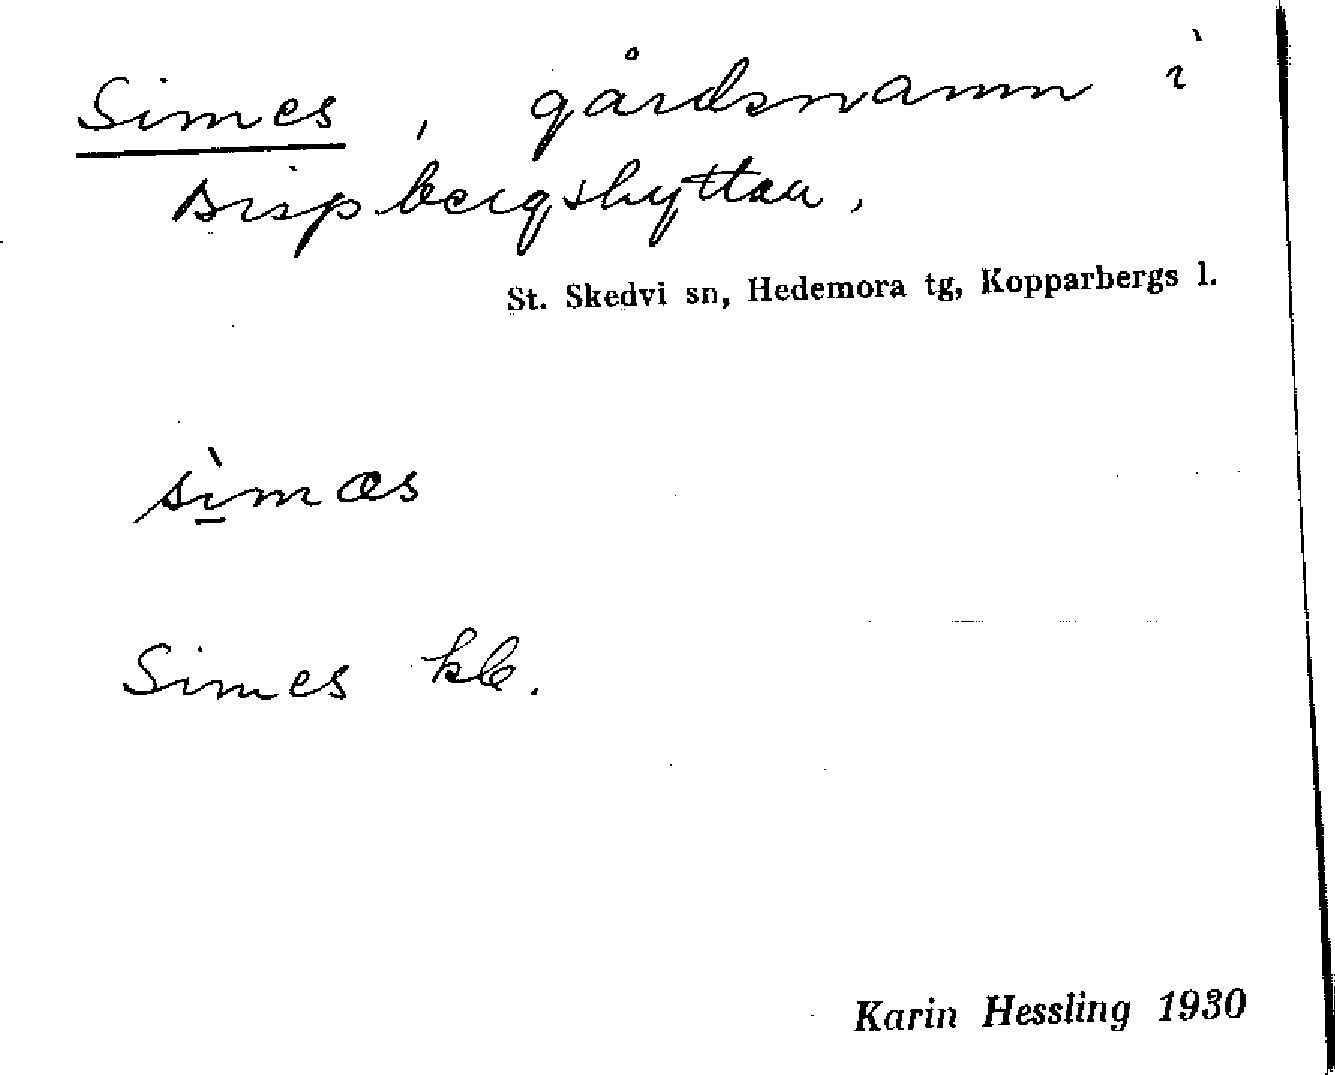 Simes, gårdsnamn i
Bispbergshyttan,
St. Skedvi sn, Hedemora tg, Kopparbergs l.
sìmæs
Simes
Karin Hessling 1930